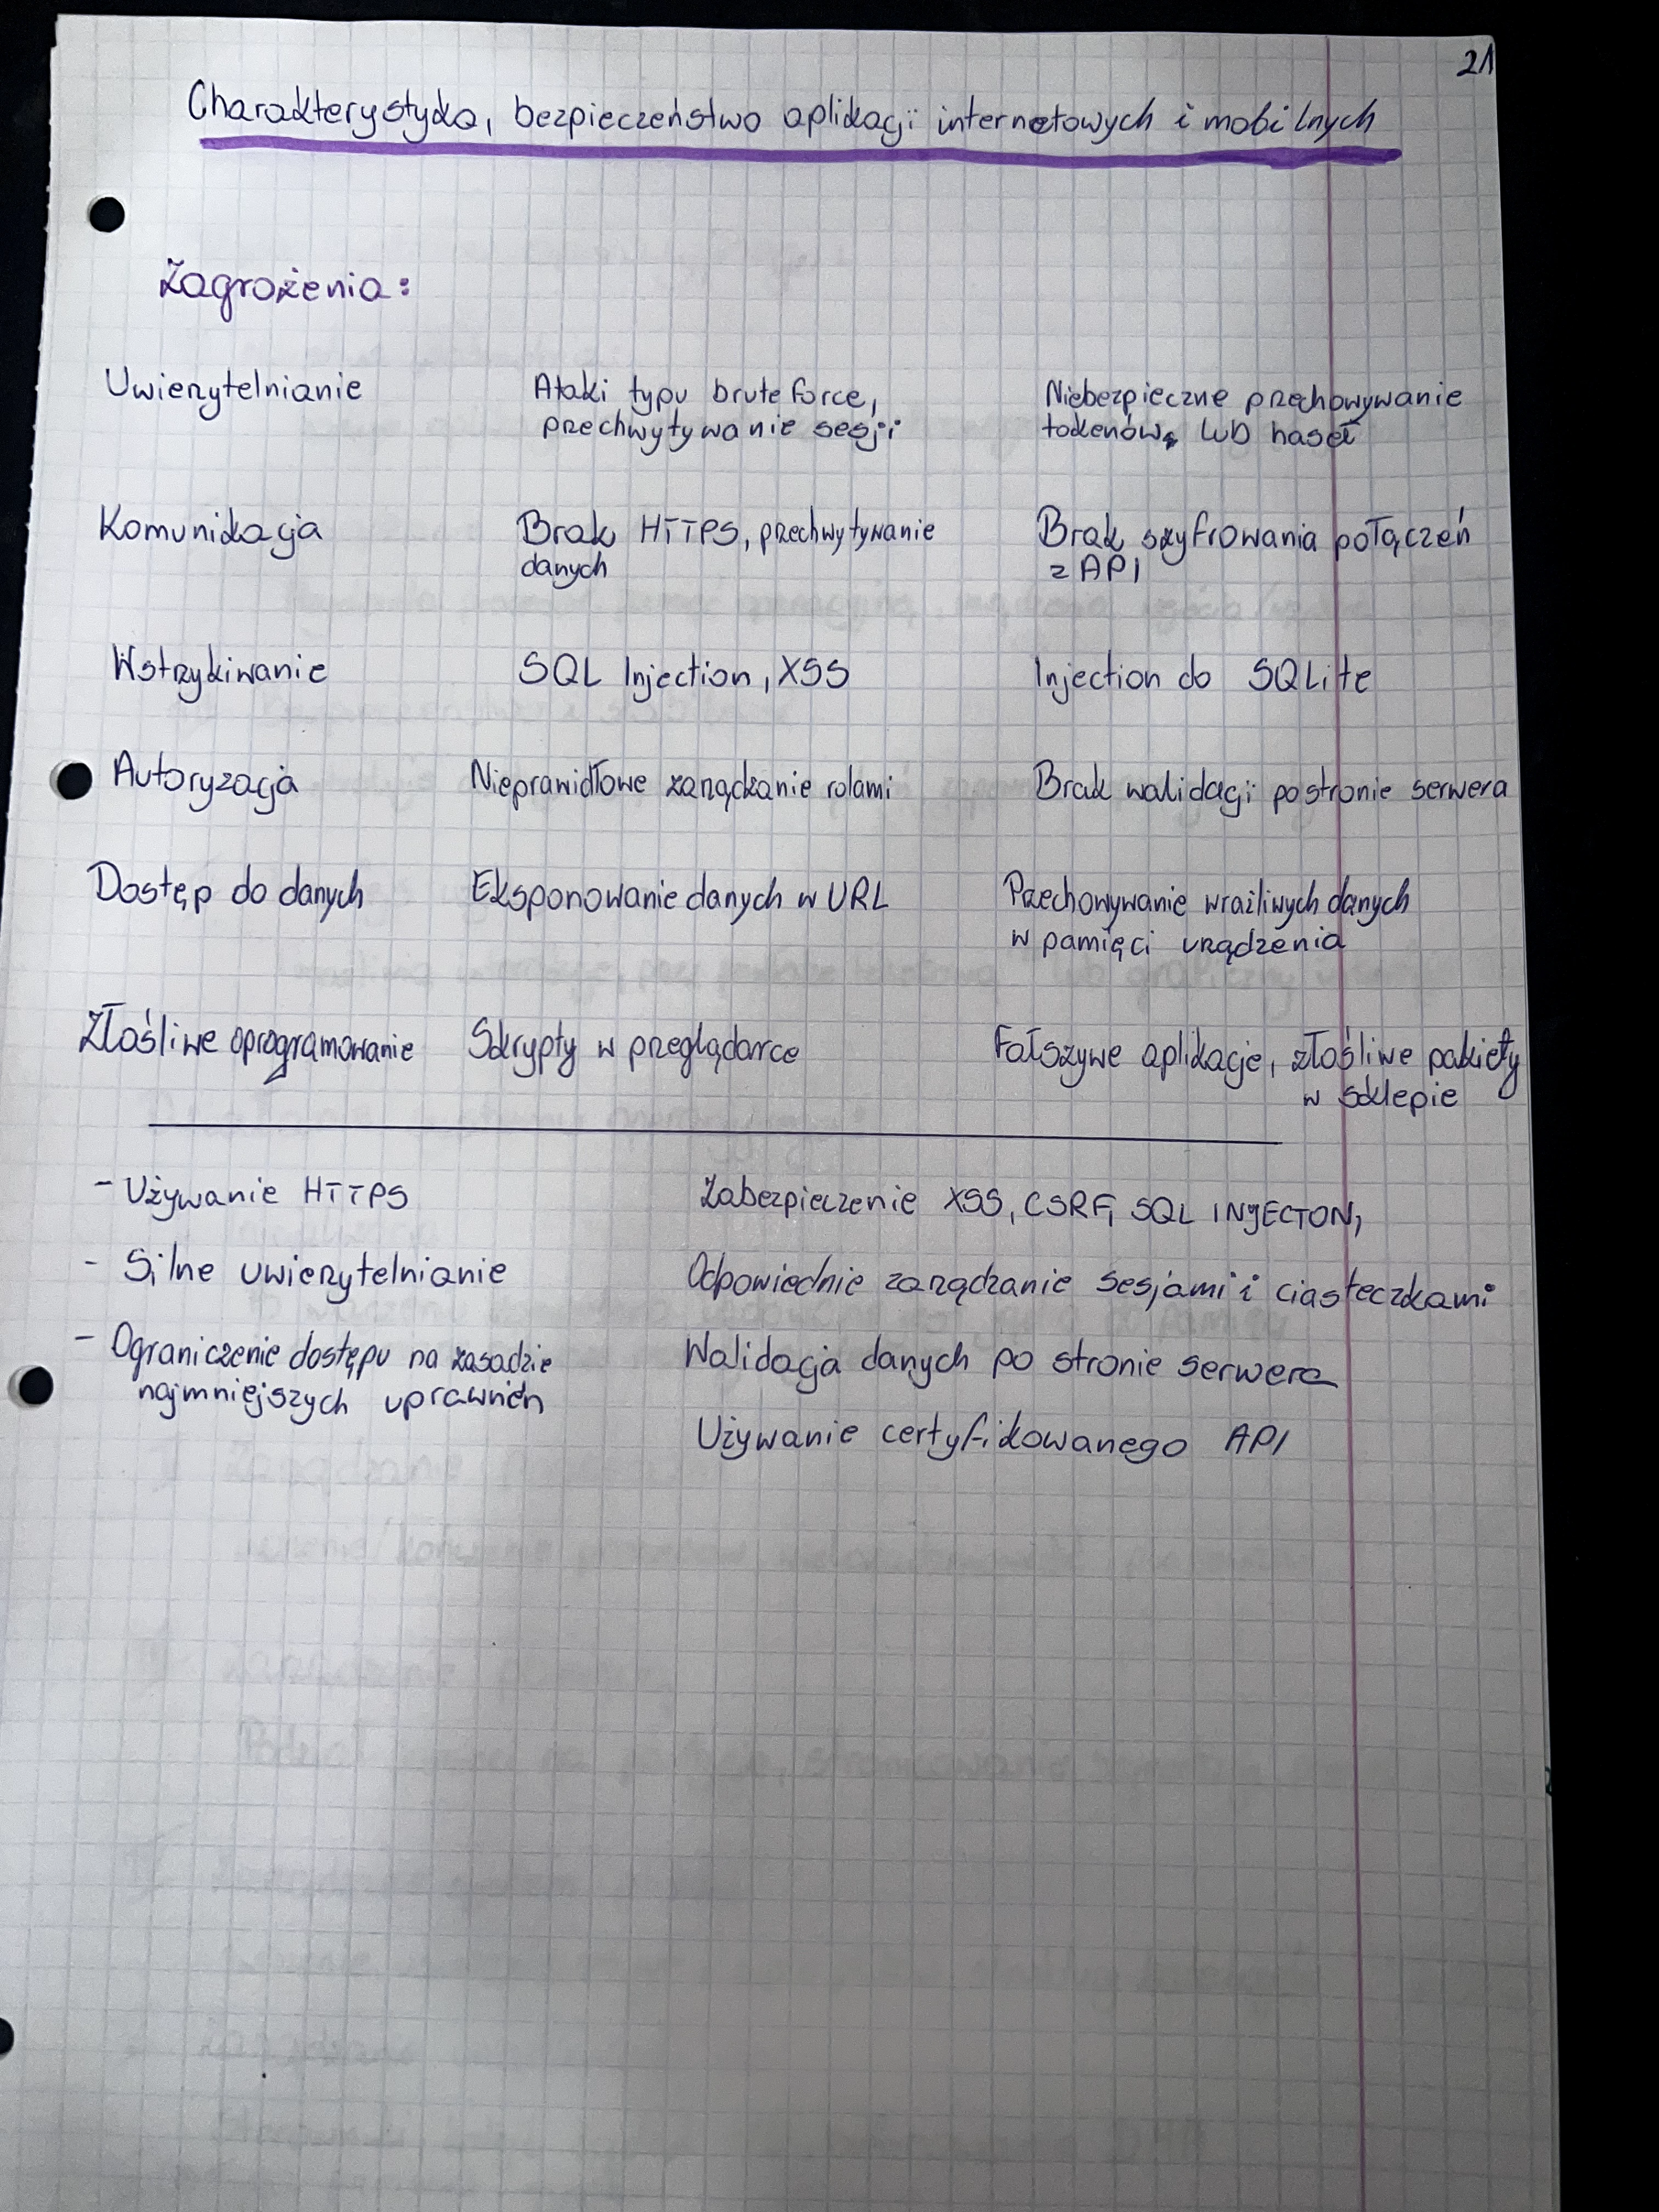 21
Charakterystyka, bezpieczeństwo aplikacji internetowych i mobilnych
Zagrożenia:
Uwierzytelnianie
Ataki typu brute force,
przechwytywanie sesji
Niebezpieczne przechowywanie
tokenów lub haseł
Komunikacja
Brak HTTPS, przechwytywanie
danych
Brak szyfrowania połączeń
z API
Wstrzykiwanie
SQL Injection, XSS
Injection do SQLite
Autoryzacja
Nieprawidłowe zarządzanie rolami
Brak walidacji po stronie serwera
Dostęp do danych
Eksponowanie danych w URL
Przechowywanie wrażliwych danych
w pamięci urządzenia
Złośliwe oprogramowanie
Skrypty w przeglądarce
Fałszywe aplikacje, złośliwe pakiety
w sklepie
- Używanie HTTPS
- Silne uwierzytelnianie
- Ograniczenie dostępu na zasadzie
najmniejszych uprawnień
Zabezpieczenie XSS, CSRF, SQL INJECTON,
Odpowiednie zarządzanie sesjami i ciasteczkami
Walidacja danych po stronie serwera
Używanie certyfikowanego API